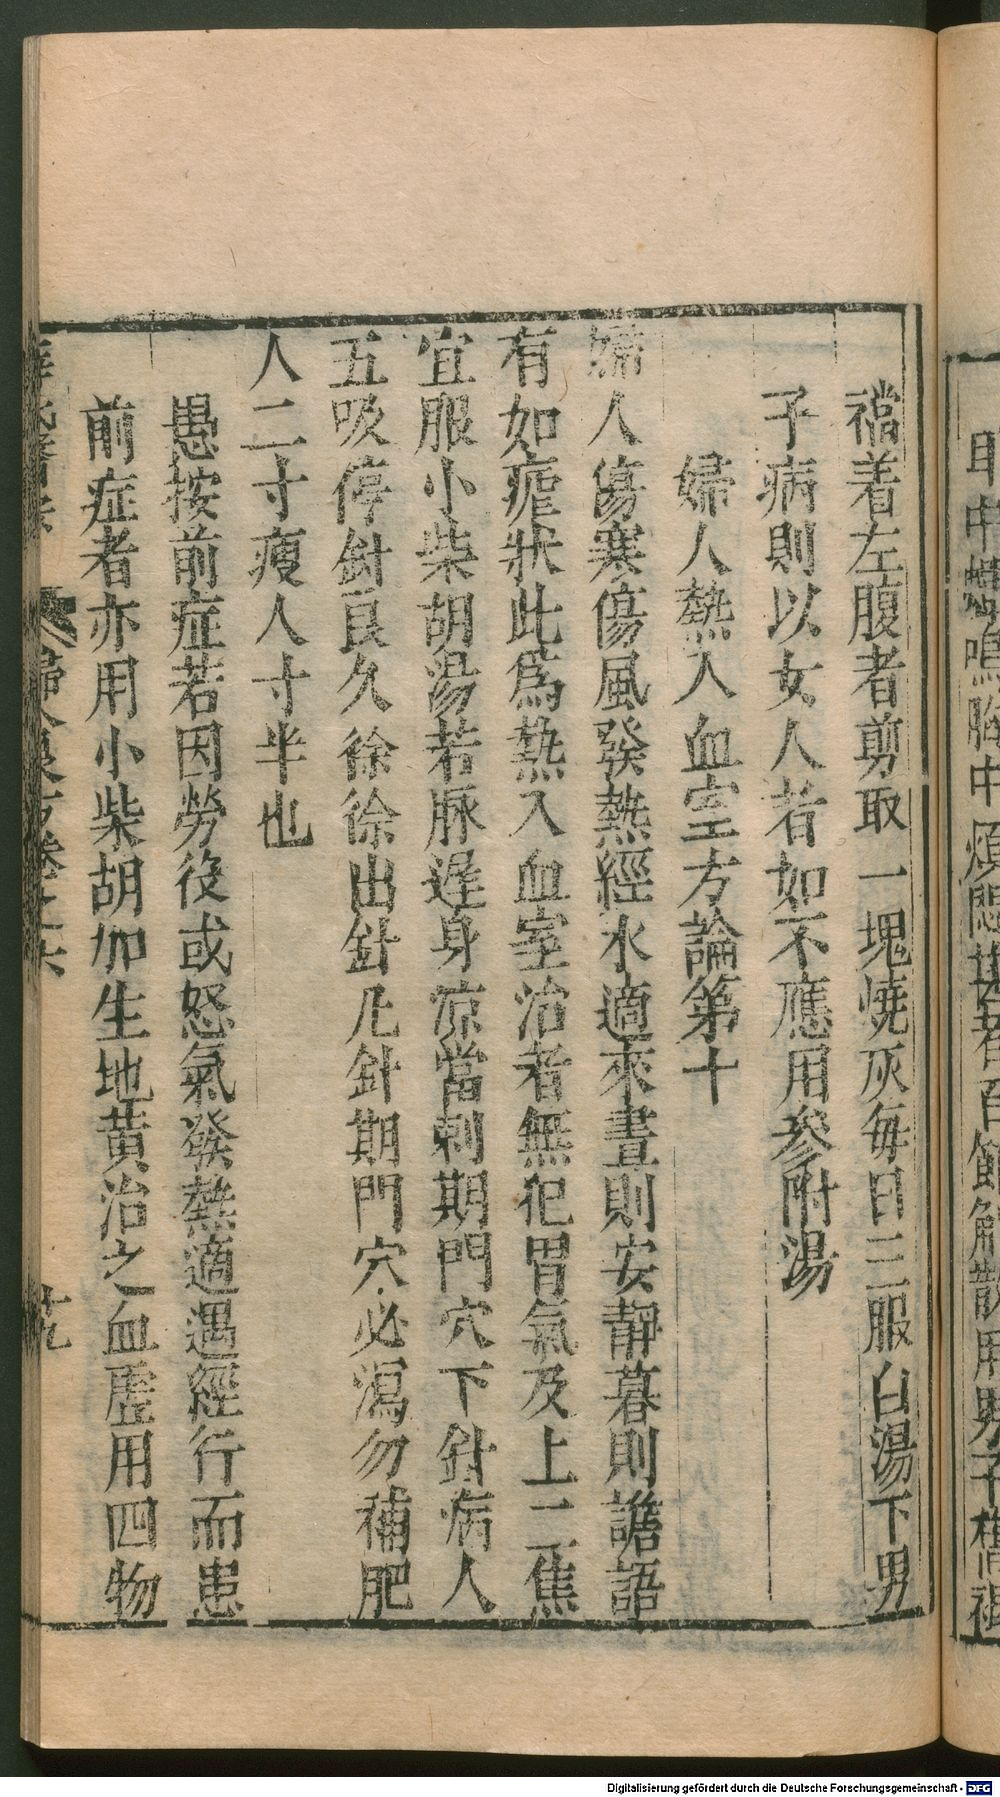 襠着左腹者剪取一塊燒灰每日三服白湯下男
子病則以女人者如不應用參附湯
婦人熱入血室方論第十
婦人傷寒傷風發熱經水適來晝則安靜暮則譫語
有如瘧狀此爲熱入血室治者無犯胃氣及上二焦
宜服小柴胡湯若脉遲身凉當刺期門穴下針病人
五吸停針良久徐徐出針凡針期門穴必瀉勿補肥
人二寸瘦人寸半也
愚按前症若因勞役或怒氣發熱適遇經行而患
前症者亦用小柴胡加生地黄治之血虛用四物
Digitalisierung gefördert durch die Deutsche Forschungsgemeinschaft - DFG